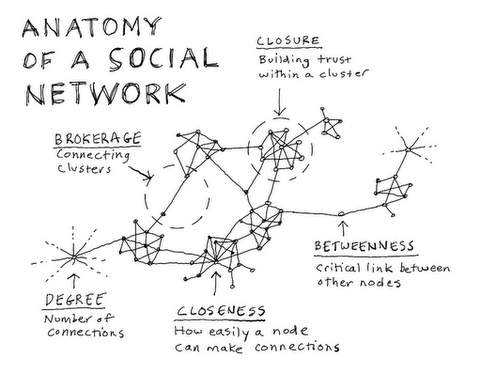 ANATOMY
OF A SOCIAL
NETWORK
CLOSURE
Building trust
within a cluster
BROKERAGE
Connecting
Clusters
BETWEENNESS
Critical link between
other nodes
DEGREE
Number of
connections
CLOSENESS
How easily a node
can make connections